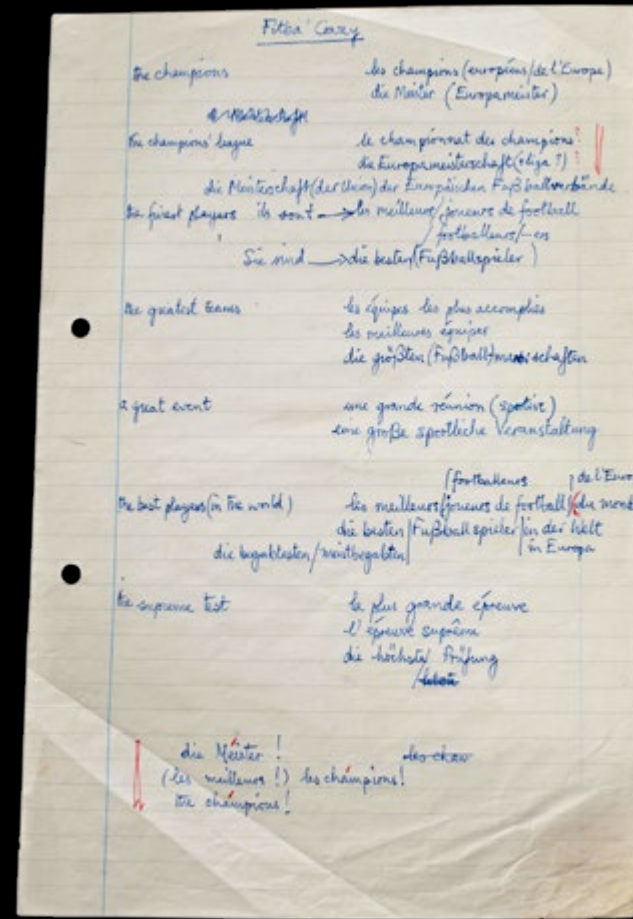 Fitba' Crazy
the champions les champions (européens/de l'Europe)
die Meister (Europameister)
the champions' league le championnat des champions?
die Europameisterschaft (-liga?)?
die Meisterschaft (der Union) der Europäischen Fußballverbände
the finest players ils sont → les meilleurs/joueurs de football
footballeurs/-ers
Sie sind → die besten (Fußballspieler)
the greatest teams les équipes les plus accomplies
les meilleures équipes
die größten (Fußball)mannschaften
a great event une grande réunion (sportive)
eine große sportliche Veranstaltung
/footballeurs de l'Euro
the best players (in the world) les meilleurs/joueurs de football/du mond
die besten/Fußballspieler/in der Welt
die begabtesten/meistbegabten in Europa
the supreme test la plus grande épreuve
l'épreuve suprême
die höchste Prüfung
die Meister! les cham
(les meilleurs!) les champions!
the champions!